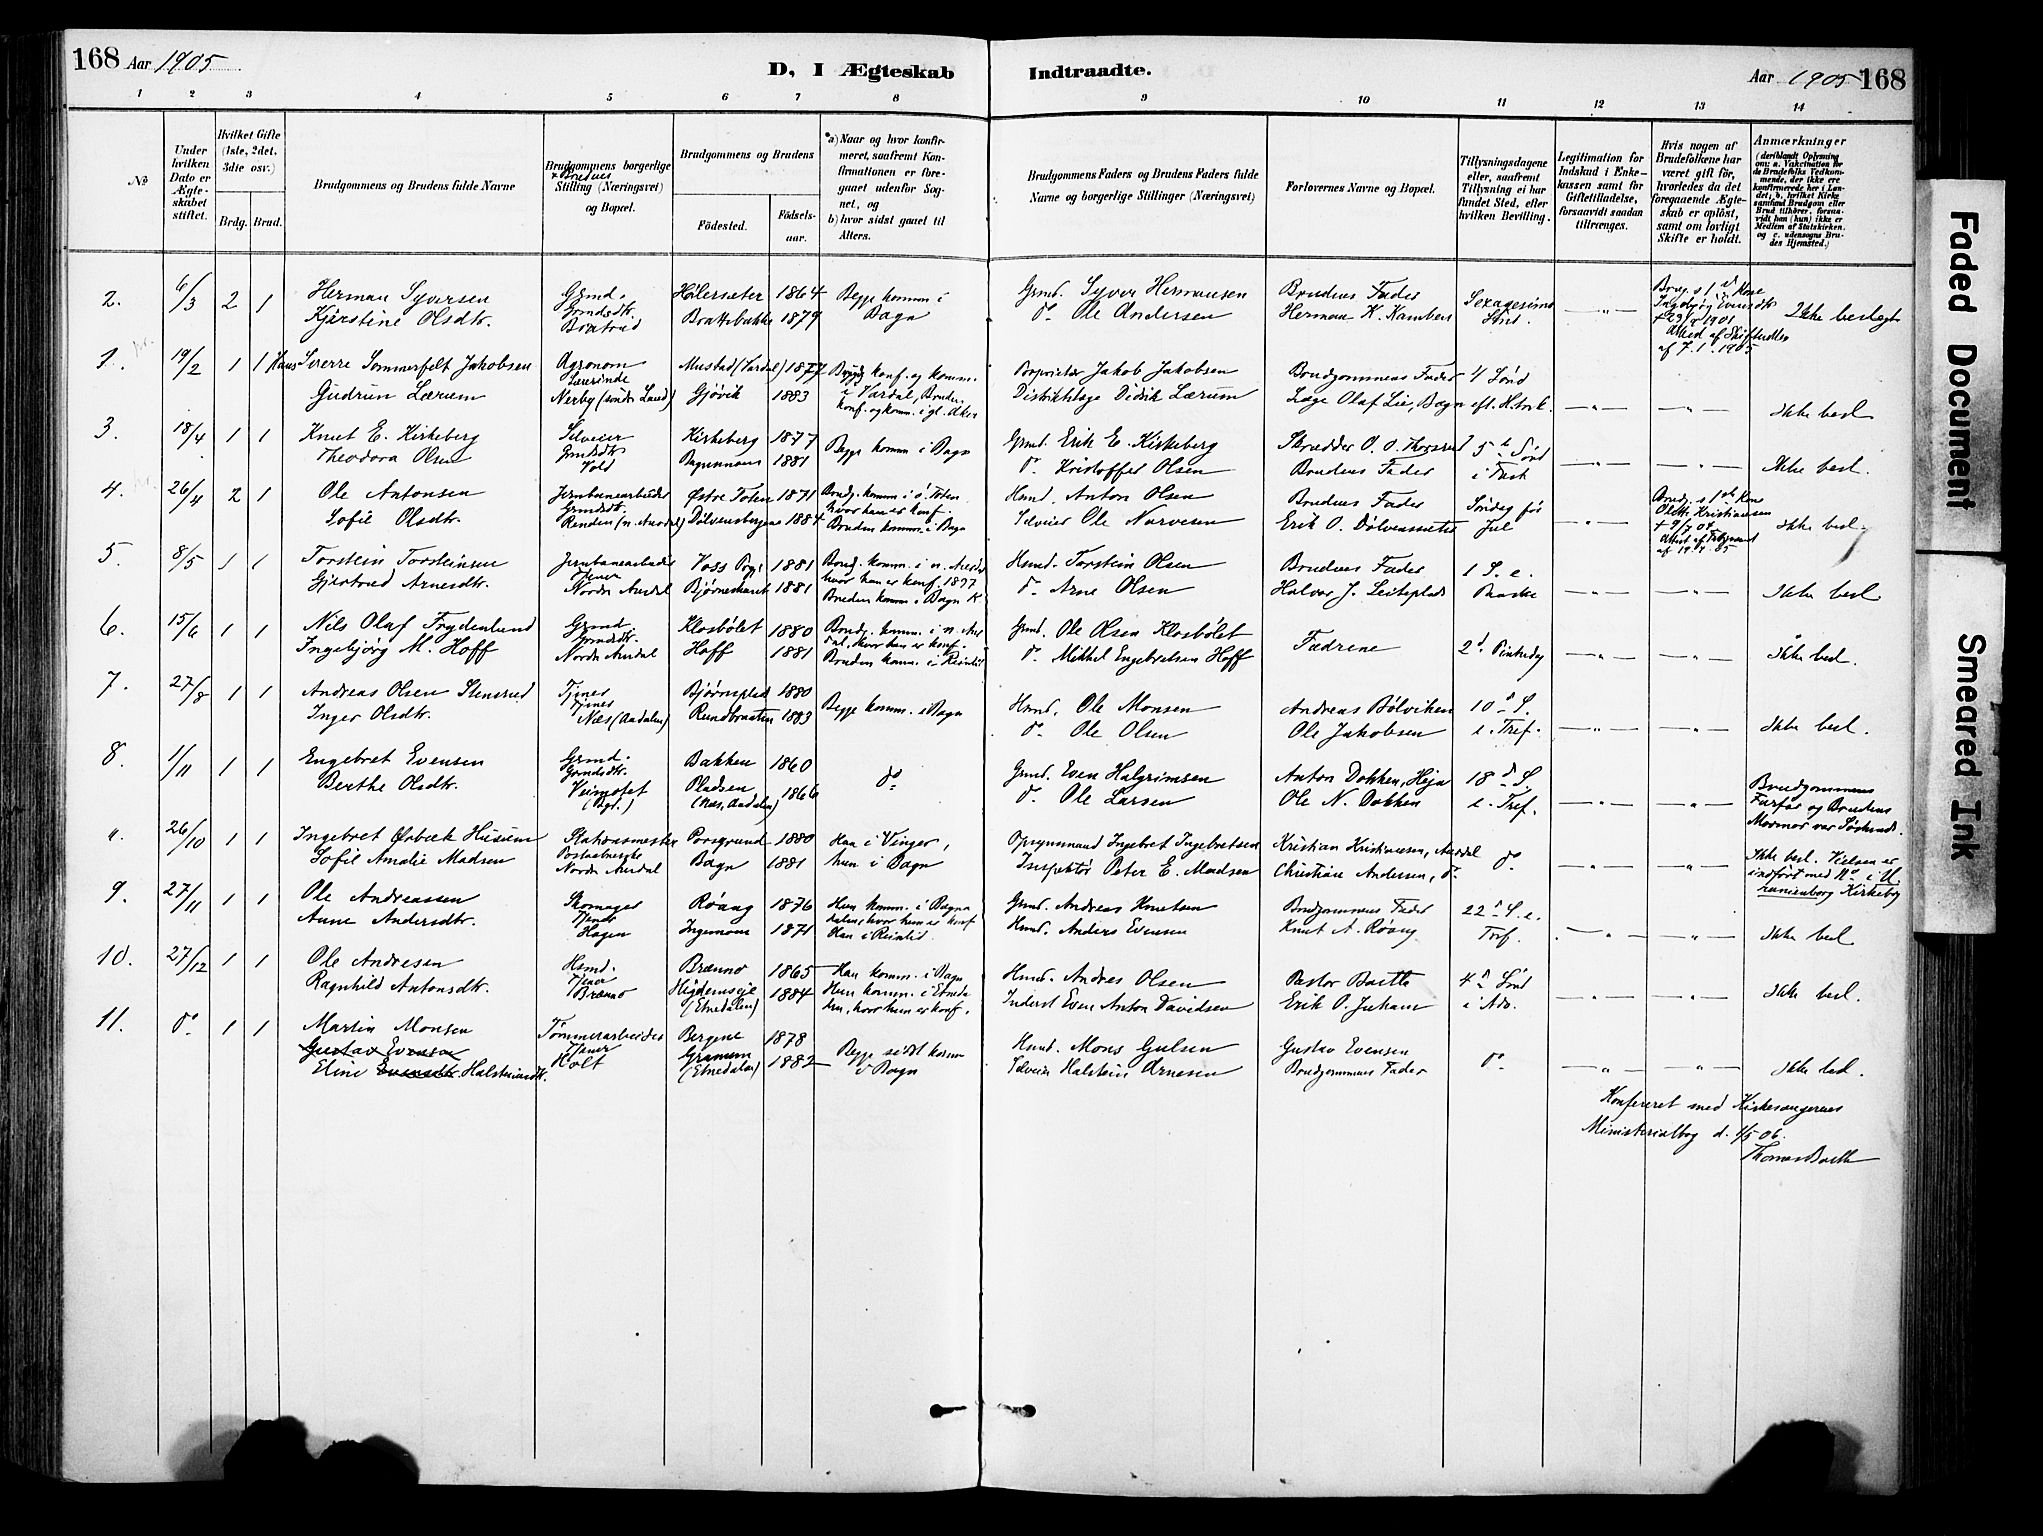 168 Aar 1905
D, I Ægteskab Indtraadte.
Aar 1905 168
1 2 3 4 5 6 7 8 9 10 11 12 13 14
No
Under hvilken Dato er Ægteskabet stiftet.
Hvilket Gifte (1ste, 2det, 3die osv.)
Brdg. Brud.
Brudgommens og Brudens fulde Navne
Brudgommens borgerlige
+ Brudens
Stilling (Næringsvei)
og Bopæl.
Brudgommens og Brudens
Födested.
Födsels-aar.
a) Naar og hvor konfirmeret, saafremt Konfirmationen er foregaaet udenför Sognet, og
b) hvor sidst gaaet til Alters.
Brudgommens Faders og Brudens Faders fulde
Navne og borgerlige Stillinger (Næringsvei)
Forlovernes Navne og Bopæl.
Tillysningsdagene eller, saafremt Tillysning ei har fundet Sted, efter hvilken Bevilling.
Legitimation for Indskud i Enkekassen samt for Giftetilladelse, forsaavidt saadan tiltrænges.
Hvis nogen af Brudefolkene har været gift för, hvorledes da det foregaaende Ægteskab er oplöst, samt om lovligt Skifte er holdt.
Anmærkninger
(deriblandt Oplysning om: a. Vakcination for de Brudefolks Vedkommende, der ikke ere konfirmerede her i Landet; b. hvilket Kirkesamfund Brudgom eller Brud tilhörer, forsaavidt han (hun) ikke er Medlem af Statskirken, og c. udensogns Brudes Hjemsted.)
2. 6/3 2 1
Herman Syversen
Kjerstine Olsdtr.
Grmd.
Grmdsdtr.
Bratrud
Hölersæter 1864
Brattebakke 1879
Begge komm. i
Bagn
Grmd. Syver Hermansen
do Ole Andersen
Brudens Fader
Herman K. Kamben
Sexagesima
Snd.
Brug. s 1ste Kone
Ingebjörg Evensdtr
1901
Attest af Skifteretten
af 7.1.1905
Ikke beslegt
1. 19/2 1 1
Hans Sverre Sommerfelt Jakobsen
Gudrun Lærum
Agronom
Lærerinde
Nerby (söndre Land)
Mustad (Vardal) 1877
Gjövik 1883
Brudg. konf. og komm.
i Vardal, Bruden
konf. og komm. i gl. Aker
Proprietær Jakob Jakobsen
Distriktslæge Didrik Lærum
Brudgommens Fader
Læge Olaf Lie, Bagn
4 Sönd
eft. H.trek.
Ikke besl
3. 18/4 1 1
Knut E. Kirkeberg
Theodora Olsen
Selveier
Grmdsdtr
Vold
Kirkeberg 1877
Bagnmoen 1881
Begge komm i Bagn
Grmd. Erik E. Kirkeberg
do Kristoffer Olsen
Skrædder O. O. Thorsrud
Brudens Fader
5te Sönd
i Fast
Ikke besl.
4. 26/4 2 1
Ole Antonsen
Sofie Olsdtr.
Jernbanearbeider
Grmdsdtr.
Renden (n. Aurdal)
Østre Toten 1871
Dölvensbergene 1884
Brudg. komm i ö. Toten
hvor han er konf.
Bruden komm. i Bagn
Hsmd. Anton Olsen
Selveier Ole Narvesen
Brudens Fader
Erik O. Dölvensæter
Söndag för
Jul
Brudg. s 1ste Kone
Olette Kristiansen
+ 9/7 04
Attest af
af 19.4.05
Ikke besl.
5. 8/5 1 1
Torstein Torsteinsen
Gjertrud Arnesdtr.
Jernbanearbeider
Tjener
Nordre Aurdal
Voss Prgj. 1881
Björneharet 1881
Brudg. komm. i n. Aurdal
hvor han er konf. 1897
Bruden komm i Bagn K
Hsmd. Torstein Olsen
do Arne Olsen
Brudens Fader
Halvor J. Leiteplads
1 S. e.
Paaske
Ikke besl.
6. 15/6 1 1
Nils Olaf Frydenlund
Ingebjörg M. Hoff
Grmd.
Grmdsdtr.
Nordre Aurdal
Klosbölet 1880
Hoff 1881
Brudg. komm. i n. Aur
dal, hvor han er konf.
Bruden komm. i Reinlid
Grmd. Ole Olsen Klosbölet
do Mikkel Engebretsen Hoff
Fædrene
2d. Pintsedag
Ikke besl.
7. 27/8 1 1
Andreas Olsen Stensrud
Inger Olsdtr.
Tjener
Tjener
Næs (Aadalen)
Björnsplad 1880
Rundbraaten 1883
Begge komm. i Bagn
Hsmd. Ole Monsen
do Ole Olsen
Andreas Bölviken
Ole Jakobsen
10de S.
e. Tref.
Ikke besl.
8. 1/11 1 1
Engebret Evensen
Berthe Olsdtr.
Grmd.
Grmdsdtr.
Veimofet
Bakken 1860
Pladsen
(Næs, Aadalen) 1866
do
Grmd. Even Halgrimsen
do Ole Larsen
Anton Dokken, Heja
Ole N. Dokken
18de S.
e. Tref.
Brudgommens
Farfar og Brudens
Mormor var Sødskende.
a. 26/10 1 1
Ingebret Ørbæk Husum
Sofie Amalie Madsen
Stationsmester
Nordre Aurdal
Porsgrund 1880
Bagn 1881
Han i Vinger,
hun i Bagn
Opsynsmand Ingebret Ingebretsen
Inspektör Peter E. Madsen
Kristian Kristiansen, Aurdal
Christian Andersen, do
do
Ikke besl. Vielsen er
indfört med No i U
ranienborg Kirkebog
9. 27/11 1 1
Ole Andreassen
Anne Andersdtr.
Skomager
Tjener
Hagen
Röang 1876
Ingemoen 1871
Hun komm. i Begna
dalen, hvor hun er konf
Han i Reinlid.
Grmd. Andreas Knutsen
Hsmd. Anders Evensen
Brudgommens Fader
Knut A. Röang
22de S. e.
Tref.
Ikke besl
10. 27/12 1 1
Ole Andresen
Ragnhild Antonsdtr.
Hsmd.
Tjener
Brænno
Brænno 1865
Högdemseje 1884
(Etnedalen)
Han komm. i Bagn
Hun komm. i Etneda
len, hvor hun er konf.
Hsmd. Andres Olsen
Inderst Even Anton Davidsen
Pastor Barth
Erik O. Juham
4de Sönd
i Adv.
Ikke besl.
11. do 1 1
Martin Monsen
Gustav Evensen
Eline Evensdtr. Halsteinsdtr.
Tömmerarbeider
Tjener
Holt
Bergene 1878
Gramem
(Etnedalen) 1882
Begge sidst komm
i Bagn
Hsmd. Mons Gulsen
Selveier Halstein Arnesen
Gustav Evensen
Brudgommens Fader
do
Ikke besl.
Konfereret med Kirkesangerens
Ministerialbog d. 1/5 06.
Thomas Barth
Faded Document
Smeared Ink